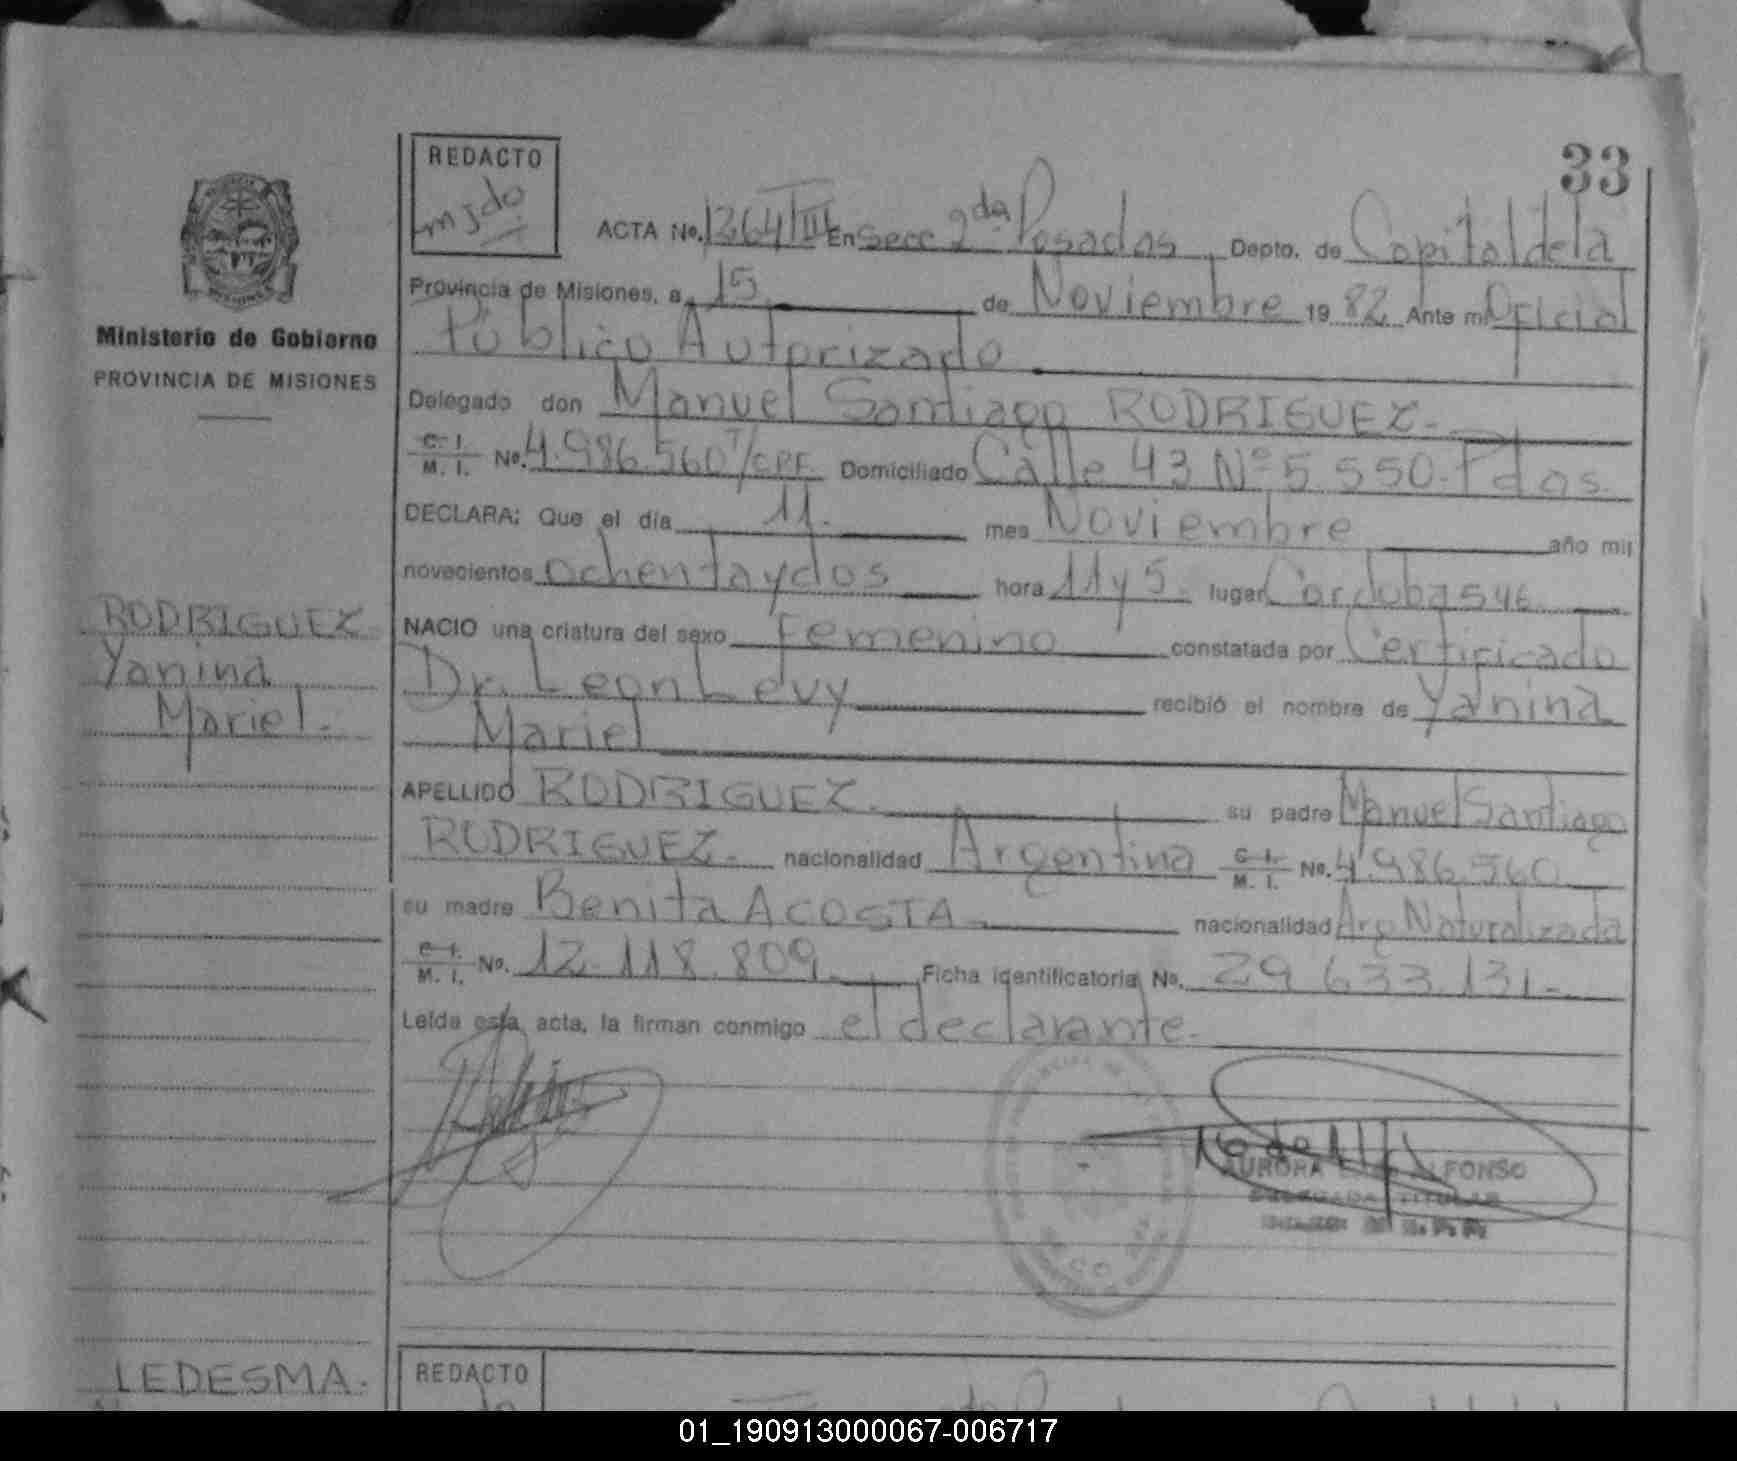 33
REDACTO
mjdo
ACTA No. 1364/III En Secc 2da. Posadas, Depto. de Capital de la
Provincia de Misiones, a 15 de Noviembre 1982 Ante mi Oficial
Público Autorizado
Delegado don Manuel Santiago RODRIGUEZ.
C. I.
M. I. No. 4.986.560 T/CPF. Domiciliado Calle 43 Nº 5.550.- Pdas.
DECLARA: Que el día 11. mes Noviembre año mil
novecientos ochentaydos hora 11 y 5. lugar Cordoba 546
NACIO una criatura del sexo femenino constatada por Certificado
Dr. Leon Levy recibió el nombre de Yanina
Mariel
APELLIDO RODRIGUEZ. su padre Manuel Santiago
RODRIGUEZ.- nacionalidad Argentina C. I.
M. I. No. 4.986.560
su madre Benita ACOSTA.- nacionalidad Arg Naturalizada
C. I.
M. I. No. 12.118.809.- Ficha identificatoria No. 29.633.131.-
Leída esta acta, la firman conmigo el declarante.-
AURORA ALFONSO
DELEGADA TITULAR
Ministerio de Gobierno
PROVINCIA DE MISIONES
RODRIGUEZ
Yanina
Mariel.-
LEDESMA.
REDACTO
01_190913000067-006717